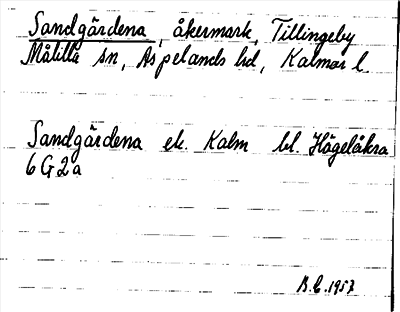 Sandgärdena, åkermark, Tillingeby
Målilla sn, Aspelands hd, Kalmar l.
Sandgärdena ek. Kalm bl. Hägelåkra
6 G 2 a
B.C. 1957